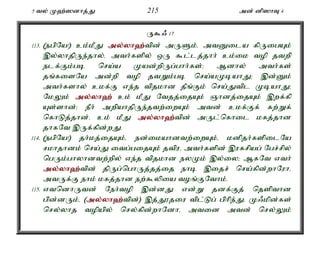 5 வல் முஹ்ஸனாத்து 215 அன் னிஸாவு 4
ருகூஃ 17
113. (நபியே) உம்மீது அல்லாஹ்வின் அருளும், அவனுடைய கிருபையும்
இல்லாதிருந்தால், அவர்களில் ஒரு கூட்டத்தார் உம்மை வழி தவறி
நடக்கும்படி செய்ய முயன்றிருப்பார்கள்; ஆனால் அவர்கள்
தங்களையே அன்றி வழி தவறும்படி செய்யமுடியாது; இன்னும்
அவர்களால் உமக்கு எந்த விதமான தீங்கும் செய்துவிட முடியாது;
மேலும் அல்லாஹ் உம் மீது வேதத்தையும் ஞானத்தையும் இறக்கி
யுள்ளான்; நீர் அறியாதிருந்தவற்றையும் அவன் உமக்குக் கற்றுக்
கொடுத்தான். உம் மீது அல்லாஹ்வின் அருட்கொடை மகத்தான
தாகவே இருக்கின்றது.
114. (நபியே) தர்மத்தையும், நன்மையானவற்றையும், மனிதர்களிடையே
சமாதானம் செய்து வைப்பதையும் தவிர, அவர்களின் இரகசியப் பேச்சில்
பெரும்பாலானவற்றில் எந்த விதமான நலமும் இல்லை; ஆகவே எவர்
அல்லாஹ்வின் திருப்பொருத்தத்தை நாடி இதைச் செய்கின்றாரோ,
அவருக்கு நாம் மகத்தான நற்கூலியை வழங்குவோம்.
115. எவனொருவன் நேர்வழி இன்னது என்று தனக்குத் தெளிவான
பின்னரும், (அல்லாஹ்வின்) இத்தூதரை விட்டுப் பிரிந்து, முஃமின்கள்
செல்லாத வழியில் செல்கின்றானோ, அவனை அவன் செல்லும்